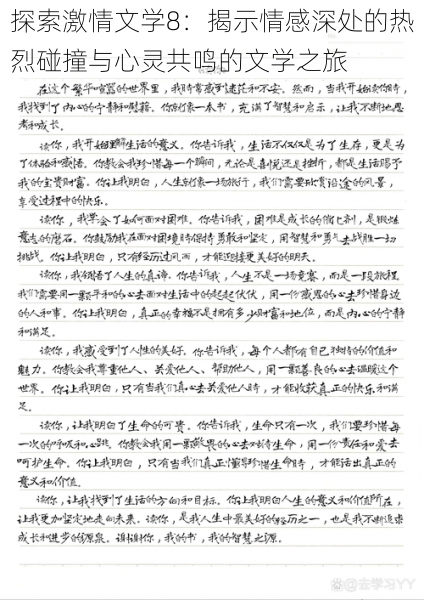 探索激情文学8：揭示情感深处的热
烈碰撞与心灵共鸣的文学之旅
在这个繁华喧嚣的世界里，我时常感到迷茫和不安。然而，当我开始读你时，
我找到了内心的宁静和慰藉。你就像一本书，充满了智慧和启示，让我不断地思
考和成长。
读你，我开始理解生活的意义。你告诉我，生活不仅仅是为了生存，更是为
了体验和感悟。你教会我珍惜每一个瞬间，无论是喜悦还是挫折，都是生活赐予
我的宝贵财富。你让我明白，人生就像一场旅行，我们需要欣赏沿途的风景，
享受过程中的快乐。
读你，我学会了如何面对困难。你告诉我，困难是成长的催化剂，是锻炼
意志的磨石。你鼓励我在面对困境时保持勇敢和坚定，用智慧和勇气去战胜一切
挑战。你让我明白，只有经历过风雨，才能迎接更美好的明天。
读你，我领悟了人生的真谛。你告诉我，人生不是一场竞赛，而是一段旅程。
我们需要用一颗平和的心去面对生活中的起起伏伏，用一份感恩的心去珍惜身边
的人和事。你让我明白，真正的幸福不是拥有多少财富和地位，而是内心的宁静
和满足。
读你，我感受到了人性的美好。你告诉我，每个人都有自己独特的价值和
魅力。你教会我尊重他人、关爱他人、帮助他人，用一颗善良的心去温暖这个
世界。你让我明白，只有当我们真心去关爱他人时，才能收获真正的快乐和满
足。
读你，让我明白了生命的可贵。你告诉我，生命只有一次，我们要珍惜每
一次的呼吸和心跳。你教会我用一颗敬畏的心去对待生命，用一份责任和爱去
呵护生命。你让我明白，只有当我们真正懂得珍惜生命时，才能活出真正的
意义和价值。
读你，让我找到了生活的方向和目标。你让我明白人生的意义和价值所在，
让我更加坚定地走向未来。读你，是我人生中最美好的经历之一，也是我不断追求
成长和进步的源泉。谢谢你，我的书，我的智慧之源。
@去学习YY